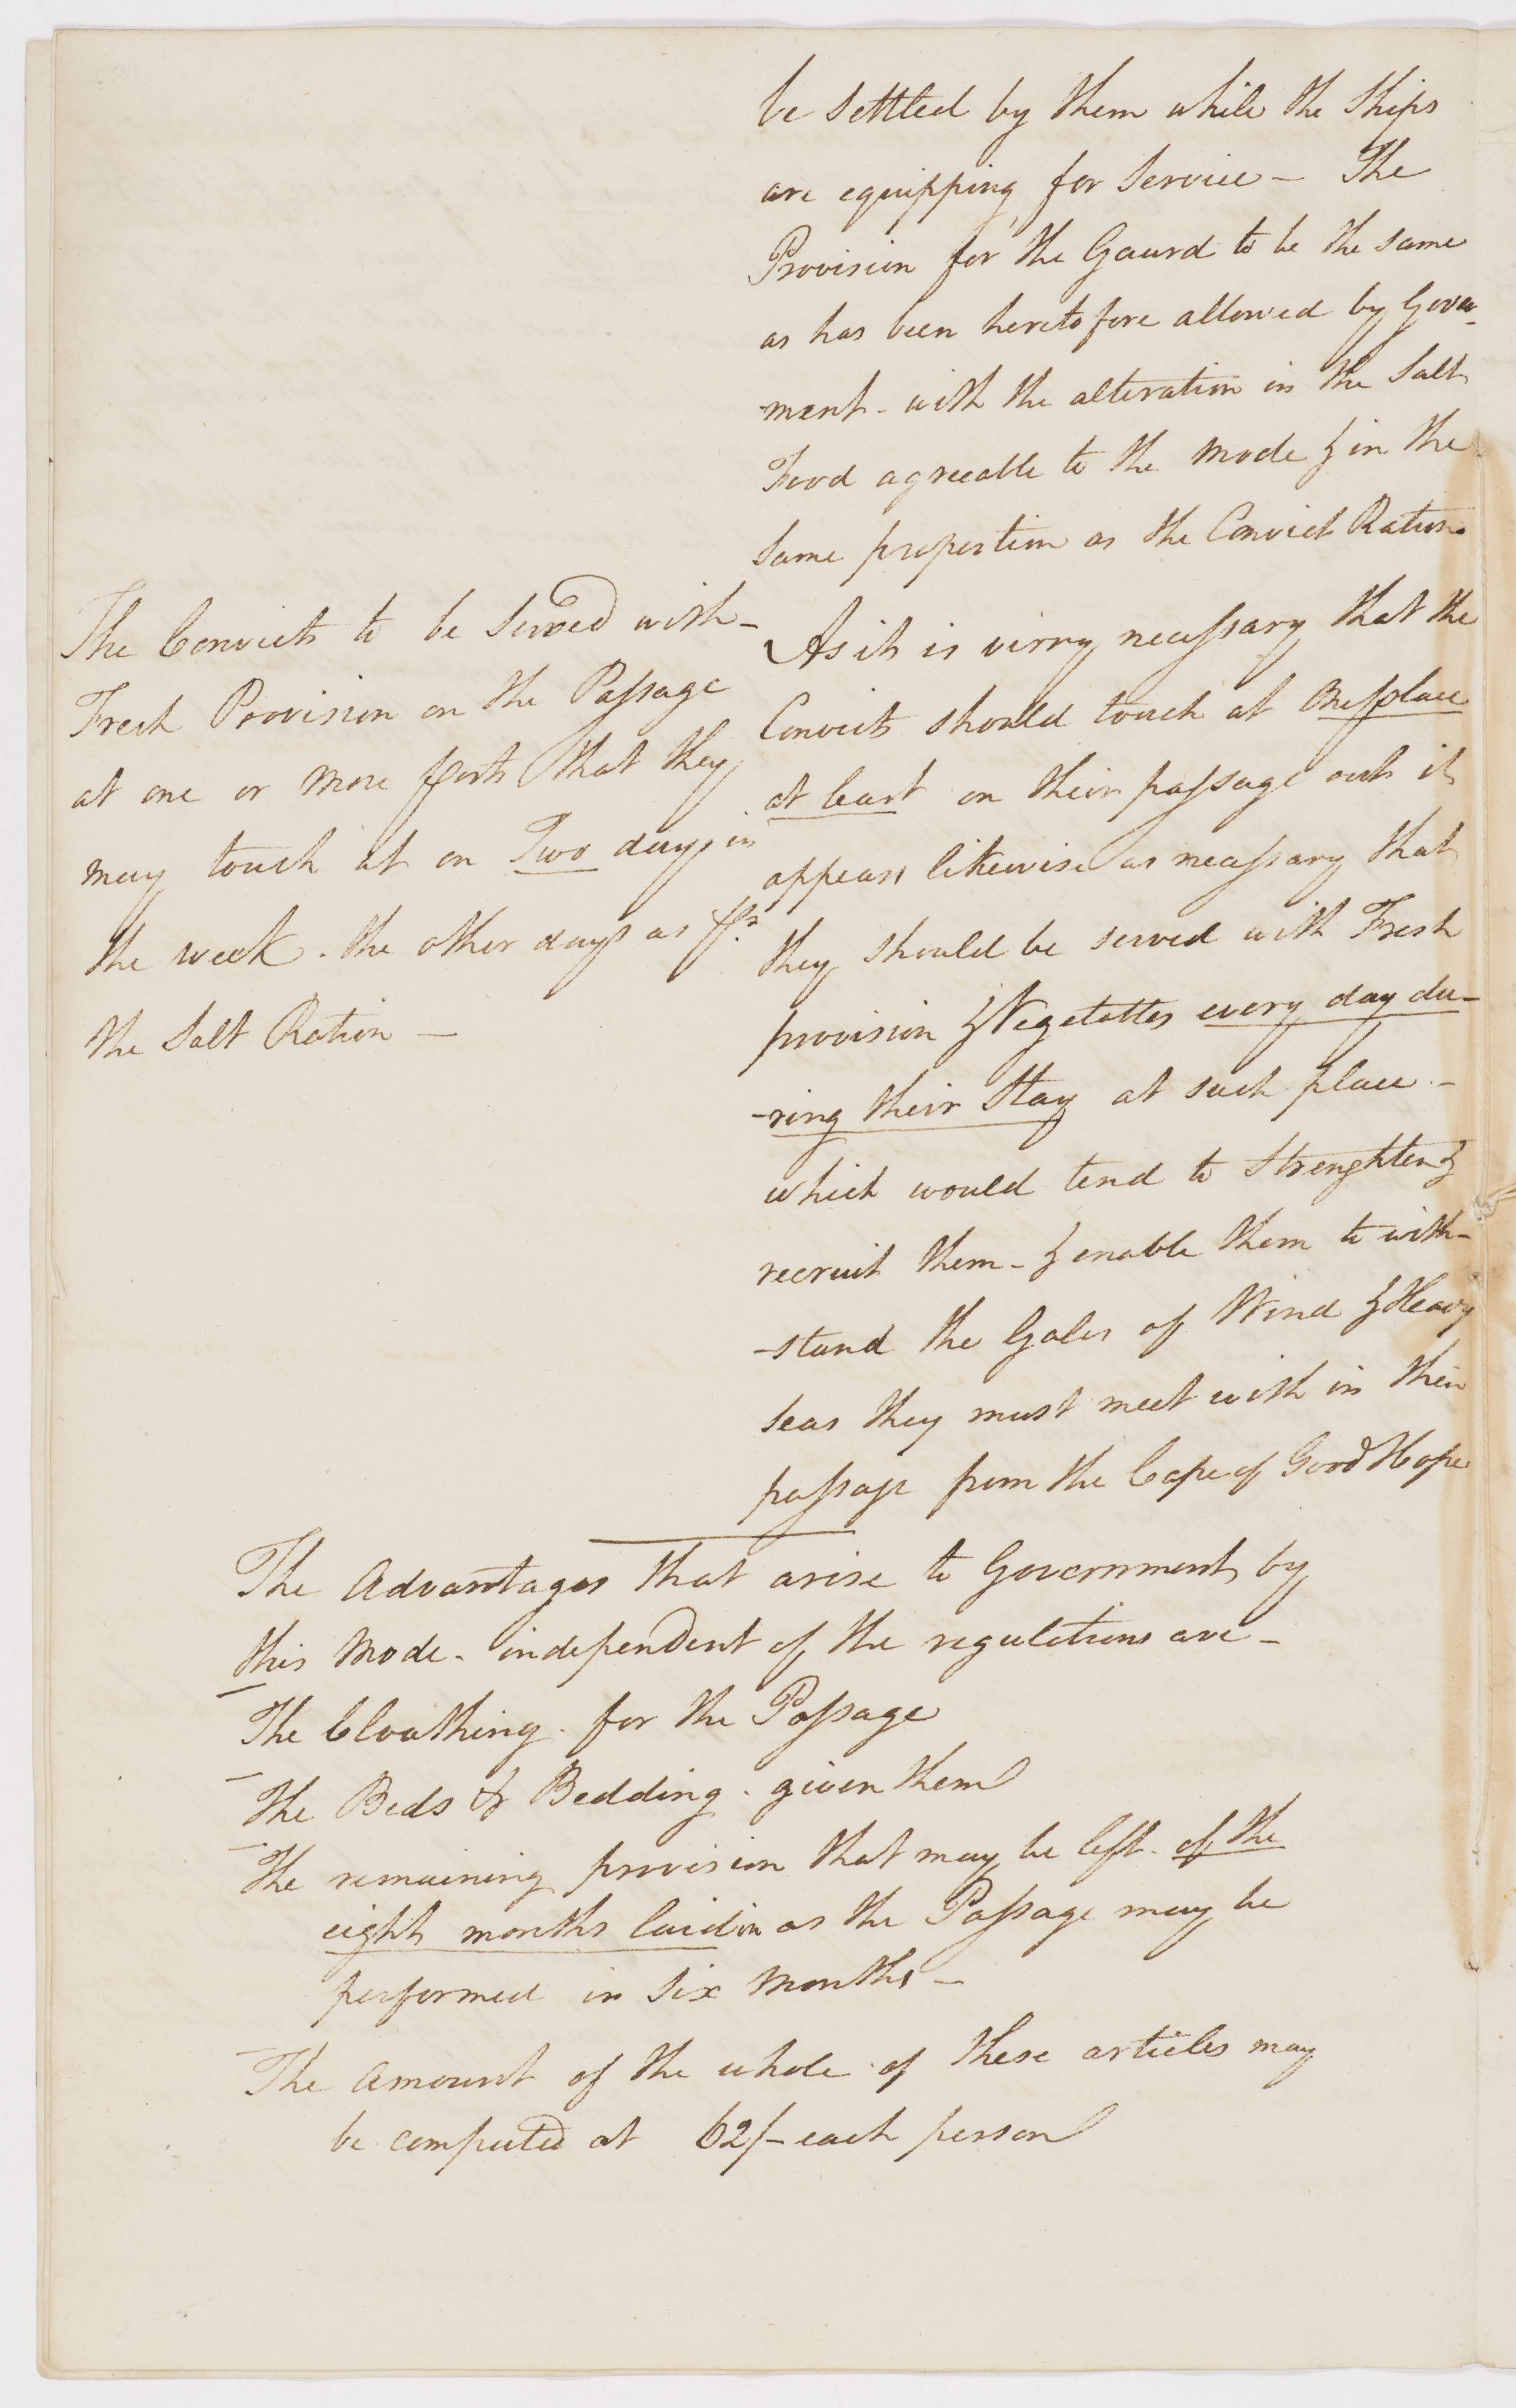 be settled by them while the Ships
are equipping for Service – The
Provision for the Gaurd to be the same
as has been heretofore allowed by Govern
-ment – with the alteration in the Salt
Food agreeable to the mode & in the
same proportion as the Convict Ration.
The Convicts to be Served with –
Fresh Provision on the Passage
at one or more ports that they
may touch at on Two days in
the week. the other days as pr
the Salt Ration –
As it is virry necessary that the
Convicts should touch at One place
at least on their passage out it
appears likewise as necessary that
they should be served with Fresh
provision & Vegetattes every day du–
–ring their Stay at such place –
which would tend to Strenghten &
recruit them – & enable them to with–
–stand the Gales of Wind & Heavy
seas they must meet with in their
passage from the Cape of Good Hope
The Advantages that arise to Government by
this Mode – independent of the regulations are –
– The Cloathing . for the Passage
– The Beds & Bedding . given them
– The remaining provision that may be left . of the
eight months laid in as the Passage may be
performed in six Months –
– The amount of the whole of these articles may
be computed at 62/– each person